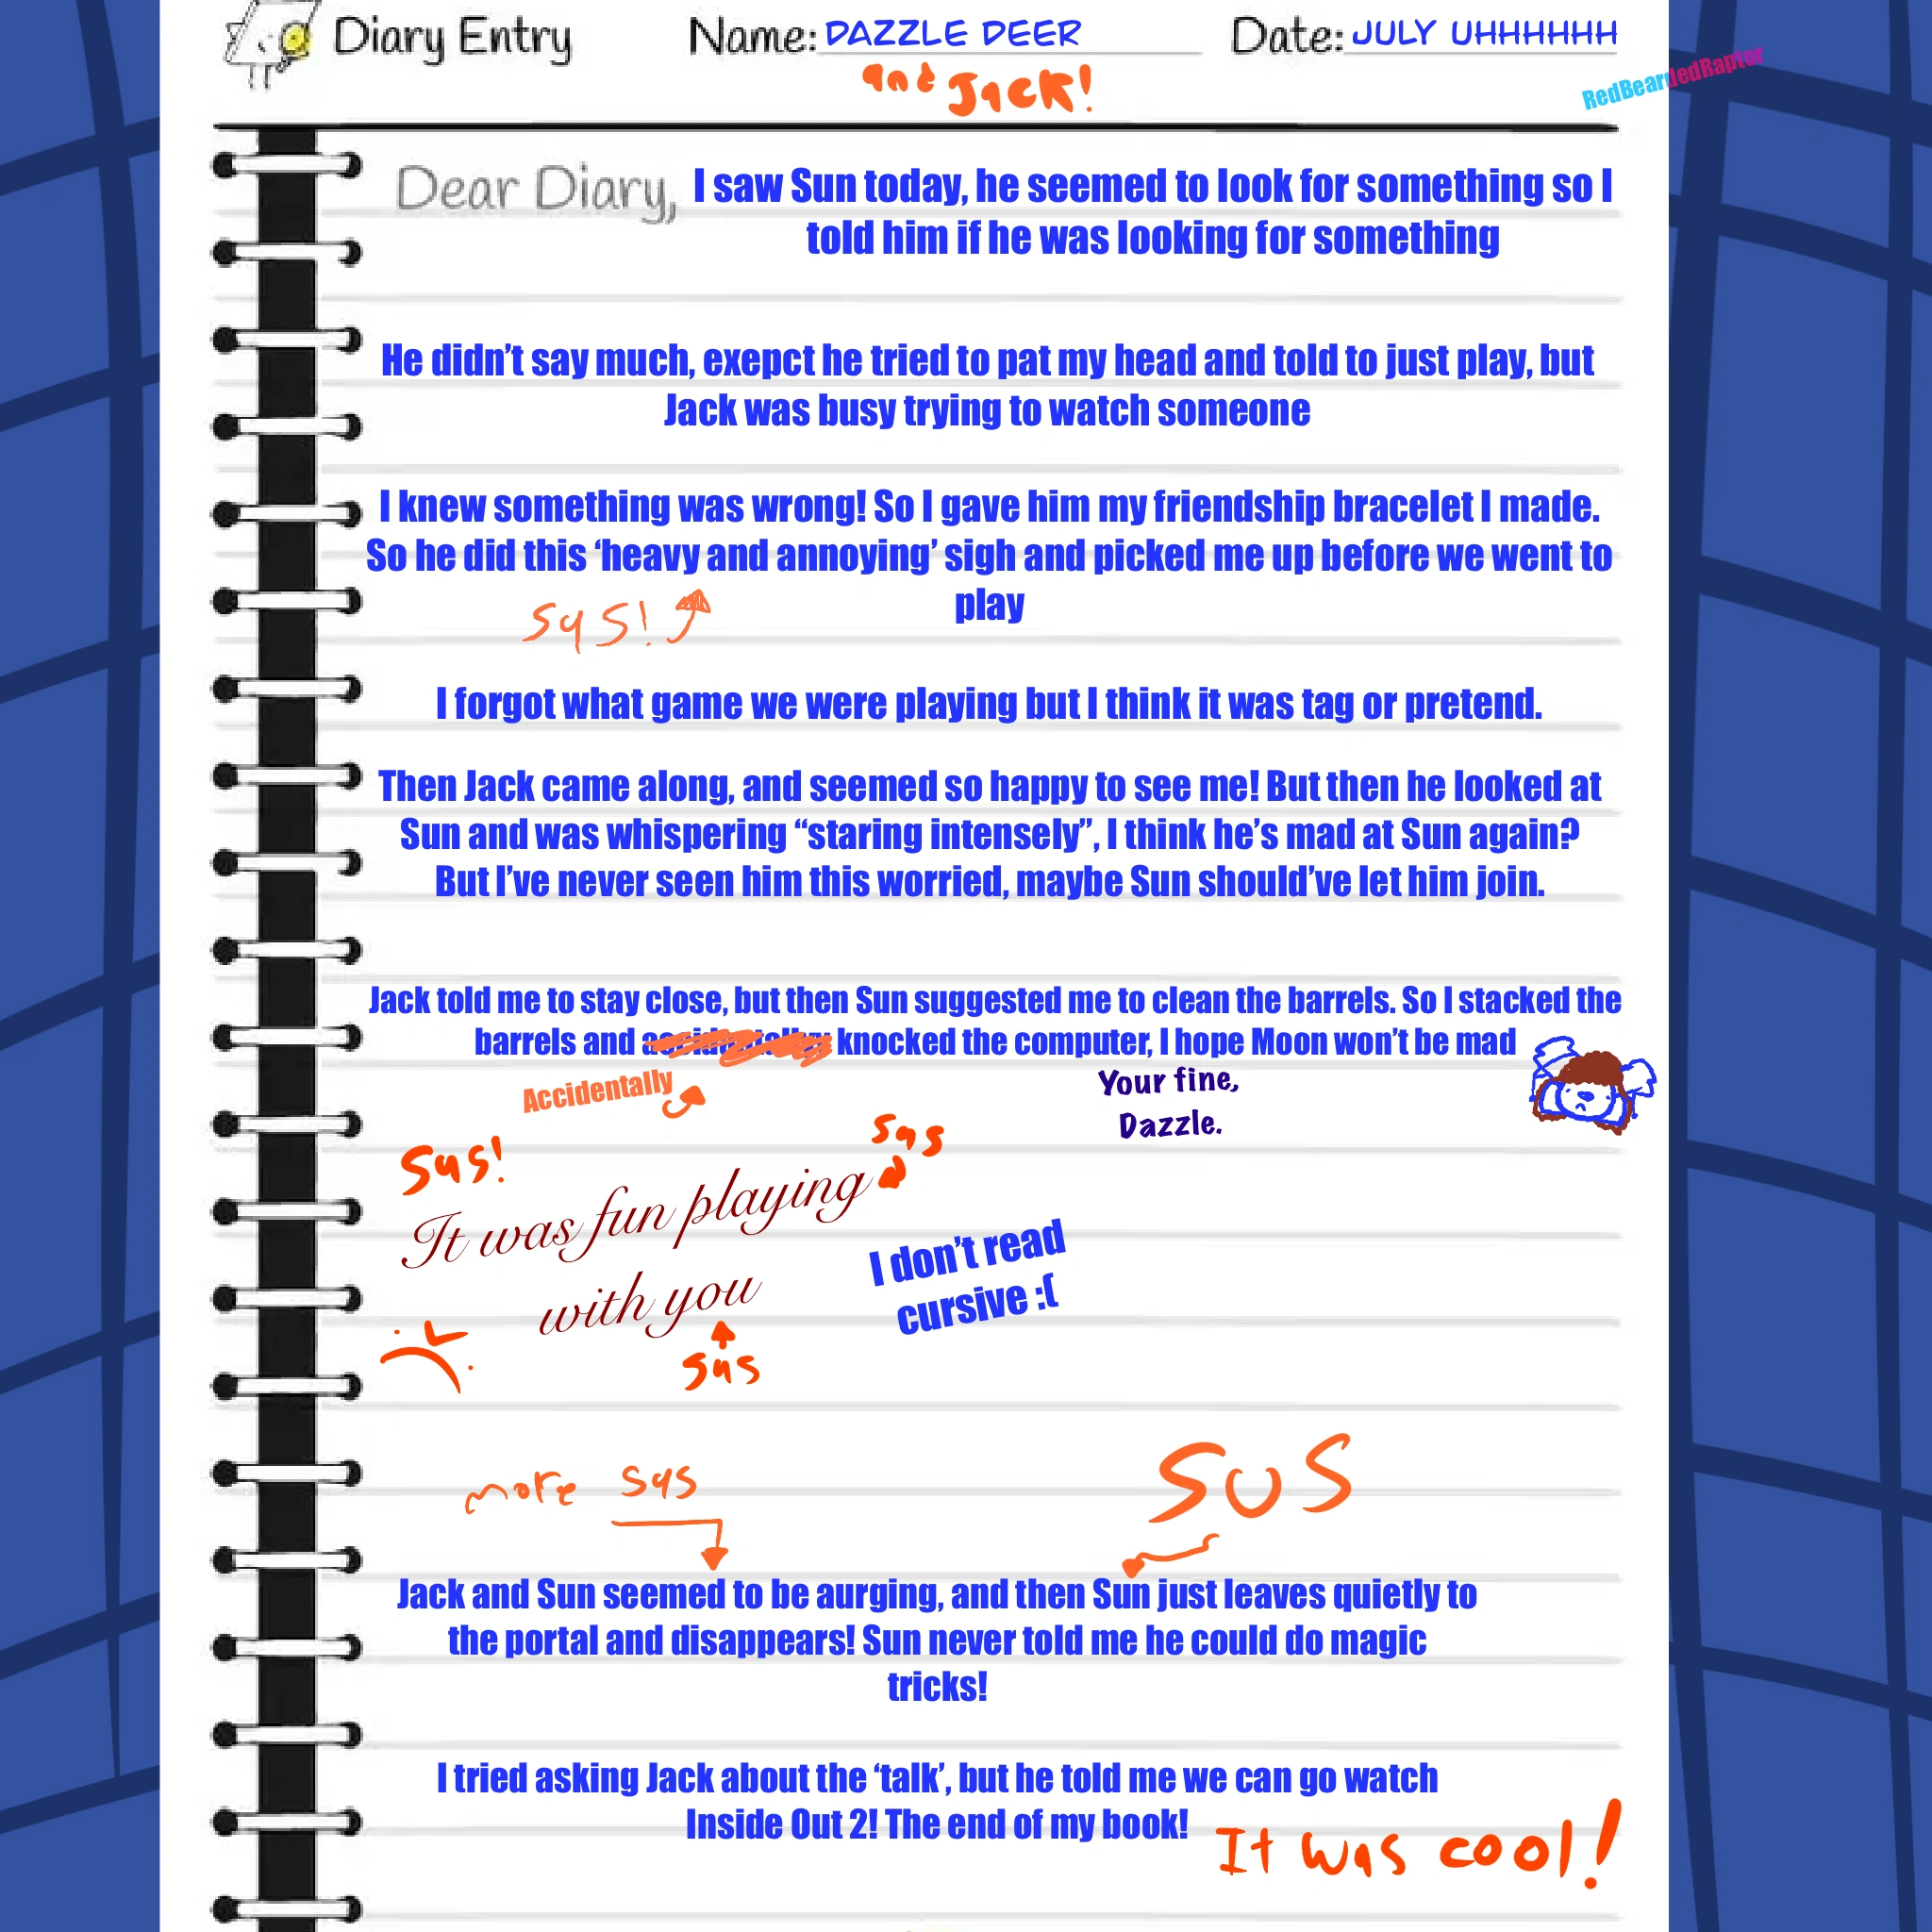 Diary Entry Name: DAZZLE DEER Date: JULY UHHHHHH
and Jack!
RedBeardedRaptor
Dear Diary, I saw Sun today, he seemed to look for something so I
told him if he was looking for something
He didn’t say much, exepct he tried to pat my head and told to just play, but
Jack was busy trying to watch someone
I knew something was wrong! So I gave him my friendship bracelet I made.
So he did this ‘heavy and annoying’ sigh and picked me up before we went to
play
sus!
I forgot what game we were playing but I think it was tag or pretend.
Then Jack came along, and seemed so happy to see me! But then he looked at
Sun and was whispering “staring intensely”, I think he’s mad at Sun again?
But I’ve never seen him this worried, maybe Sun should’ve let him join.
Jack told me to stay close, but then Sun suggested me to clean the barrels. So I stacked the
barrels and knocked the computer, I hope Moon won’t be mad
Accidentally
Your fine,
Dazzle.
sus!
sus
It was fun playing
with you
I don’t read
cursive :(
sus
more sus
SUS
Jack and Sun seemed to be aurging, and then Sun just leaves quietly to
the portal and disappears! Sun never told me he could do magic
tricks!
I tried asking Jack about the ‘talk’, but he told me we can go watch
Inside Out 2! The end of my book!
It was cool!